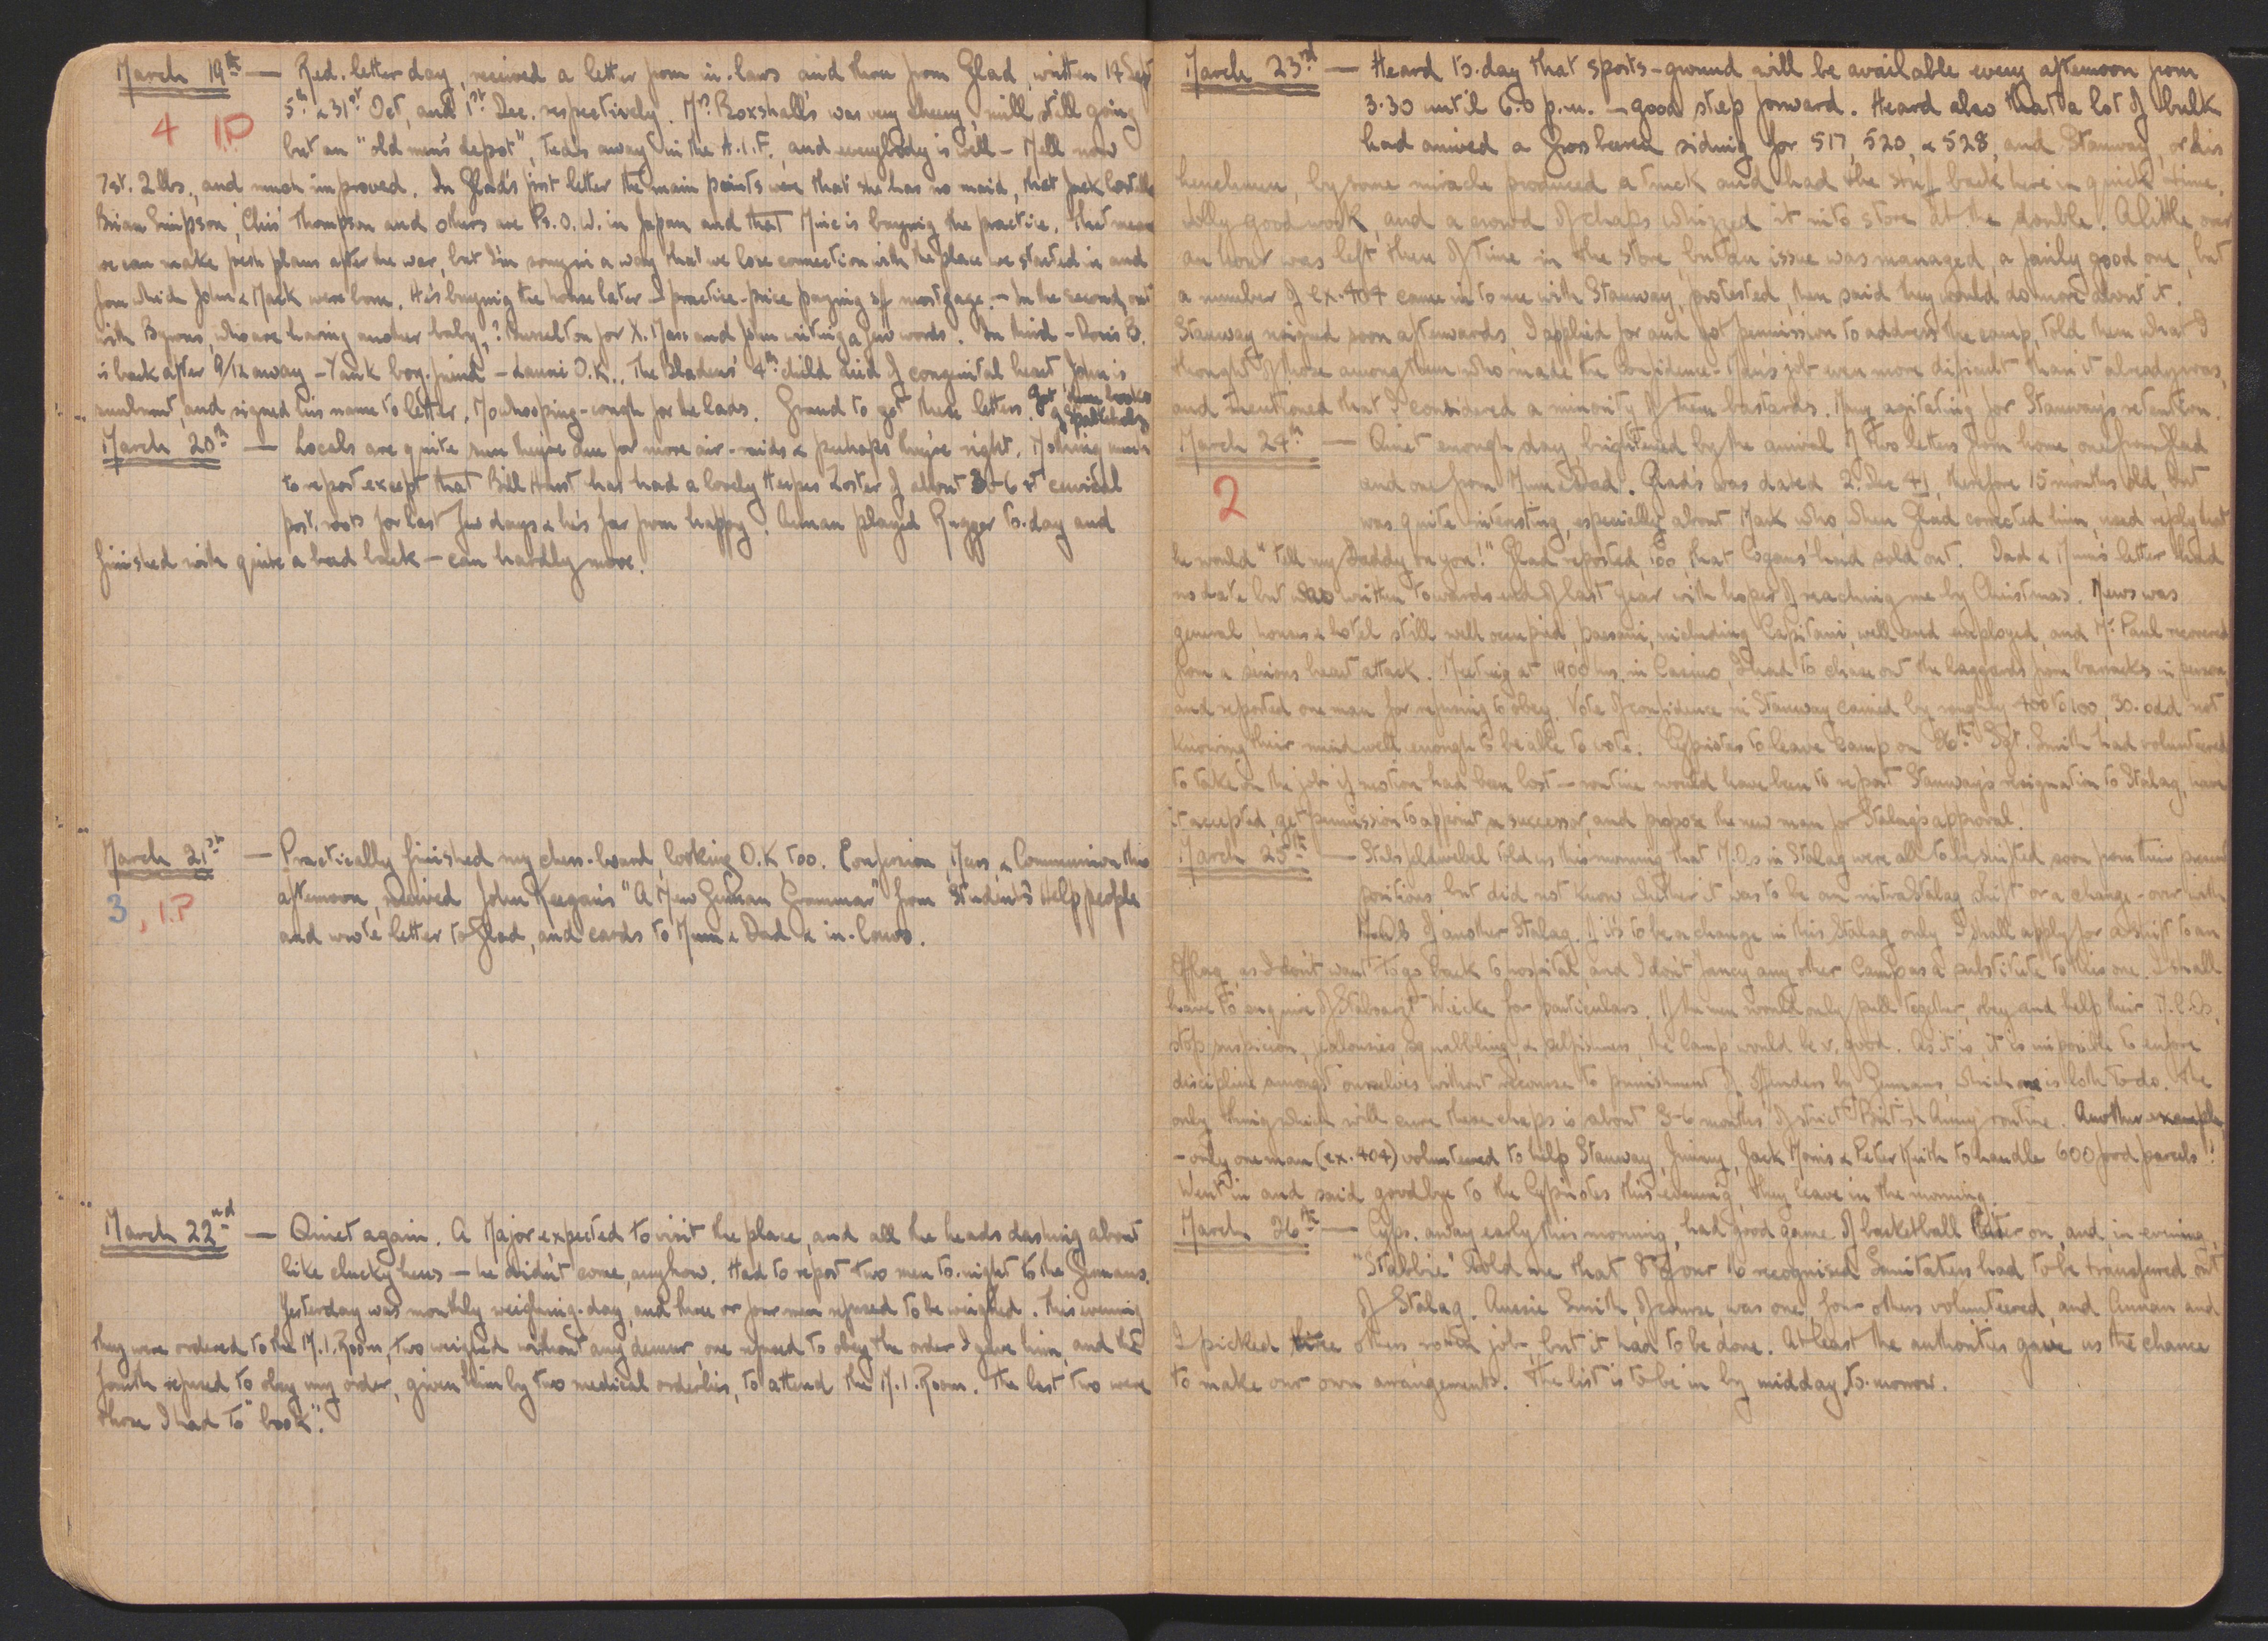 March 19th — Red-letter day, received a letter from in-laws and three from Glad, written 14 Sept
5th & 31st Oct, and 1st Dec. respectively. Mrs Boxshall's was very cheery, mill still going
4 1P
but an "old men's depot", Ted's away in the A.I.F. and everybody is well — Nell now
7st. 2 lbs, and much improved. In Glad's first letter the main points were that she has no maid, that Jack
Brian Simpson, 'Chis' Thompson and others are Ps.O.W. in Japan and that is buying the practice. That means
we can make fresh plans after the war, but I'm sorry in a way that we lose connection with the place we started in and
from which John & Mack were born. He's buying the house later — practice-price paying off mortgage. — In the second, out
with Byrons, who are having another baby, ? for X.Mass and John writing a few words. In third — Doris B.
is back after 9/12 away — Yank boy-friend — O.K., The Bladens' 4th child died of congenital heart, John is
sunburnt, and signed his name to letter. No whooping-cough for the lads. Grand to get these letters. Got three books
g
March 20th — Locals are quite sure they're due for more air-raids & perhaps they're right. Nothing much
to report except that Bill Hurst has had a lovely Herpes Zoster of about 3-6 cervical
post. roots for last few days & he's far from happy. played Rugger to-day and
finished with quite a bad back — can hardly move.
March 21st — Practically finished my chess-board, looking O.K. too. Confession, Mass & Communion this
3, 1.P
afternoon, received John Keegan's "A New German Grammar" from Students Help people
and wrote letter to Glad, and cards to Mum & Dad & in-laws.
March 22nd — Quiet again. A Major expected to visit the place, and all the heads dashing about
like clucky hens — he didn't come, anyhow. Had to report two men to-night to the Germans.
Yesterday was monthly weighing-day, and three or four men refused to be weighed. This evening
they were ordered to the M.I. Room, two weighed without any demur, one refused to obey the order I gave him, and the
fourth refused to obey my order, given him by two medical orderlies, to attend the M.I. Room. The last two were
those I had to "book".
March 23rd — Heard to-day that sports-ground will be available every afternoon from
3.30 until 6.0 p.m. — good step forward. Heard also that a lot of bulk
had arrived a siding for 517, 520, & 528, and Stanway, or his
henchmen, by some miracle produced a truck and had the stuff back here in quick time.
Jolly good work, and a crowd of chaps whizzed it into store at the double. A little over
an hour was left then of time in the store, but an issue was managed, a fairly good one, but
a number of ex-404 came in to me with Stanway, protested, then said they would do more about it.
Stanway resigned soon afterwards, I applied for and got permission to address the camp, told them what I
thought of those among them who made the Confidence-Man's job even more difficult than it already was,
and mentioned that I considered a minority of them bastards. Many agitating for Stanway's retention.
March 24th — Quiet enough day, brightened by the arrival of two letters from home, one from Glad
2
and one from Mum & Dad. Glad's was dated 2 Dec 41, therefore 15 months old, but
was quite interesting, especially about Mack who, when Glad corrected him, used reply that
he would "tell my Daddy on you!" Glad reported, too that had sold out. Dad & Mum's letter had
no date but was written towards end of last year with hopes of reaching me by Christmas. News was
general, houses & hotel still well occupied, paesani, including Capitani, well and employed, and Mr Paul recovered
from a serious heart attack. Meeting at 1900 hrs. in Casino, I had to chase out the laggards from barracks in person,
and reported one man for refusing to obey. Vote of confidence in Stanway carried by roughly 400 to 100, 30-odd not
knowing their mind well enough to be able to vote. Cypriotes to leave camp on 26th. Sgt. Smith had volunteered
to take on the job if motion had been lost — routine would have been to report Stanway's resignation to Stalag, have
it accepted, get permission to appoint a successor, and propose the new man for Stalag's approval.
March 25th — Stabsfeldwebel told us this morning that M.Os in Stalag were all to be shifted soon from their present
positions, but did not know whether it was to be an intra Stalag shift or a change-over with
M.O.s of another Stalag. If it's to be a change in this Stalag only I shall apply for a shift to an
Oflag, as I don't want to go back to hospital, and I don't fancy any other Camp as a substitute to this one. I shall
have to enquire of Stabsarzt Wicke for particulars. If the men would only pull together, obey and help their N.C.Os,
stop suspicion, jealousies squabbling, & selfishness, the camp would be v. good. As it is, it is impossible to enforce
discipline amongst ourselves without recourse to punishment of offenders by Germans, which one is loth to do. The
only thing which will cure these chaps is about 3-6 months of strict British Army routine. Another example,
— only one man (ex-404) volunteered to help Stanway, Jimmy, Jack Morris & Peter Keith to handle 600 food parcels!
Went in and said goodbye to the Cypriotes this evening, they leave in the morning.
March 26th — Cyps. away early this morning, had good game of basketball later on, and in evening,
"Stabbie" told me that 8 of our 16 recognised Sanitaters had to be transferred out
of Stalag. Aussie Smith, of course, was one, four others volunteered, and and
I picked three others, rotten job, but it had to be done. At least the authorities gave us the chance
to make our own arrangements. The list is to be in by midday to-morrow.